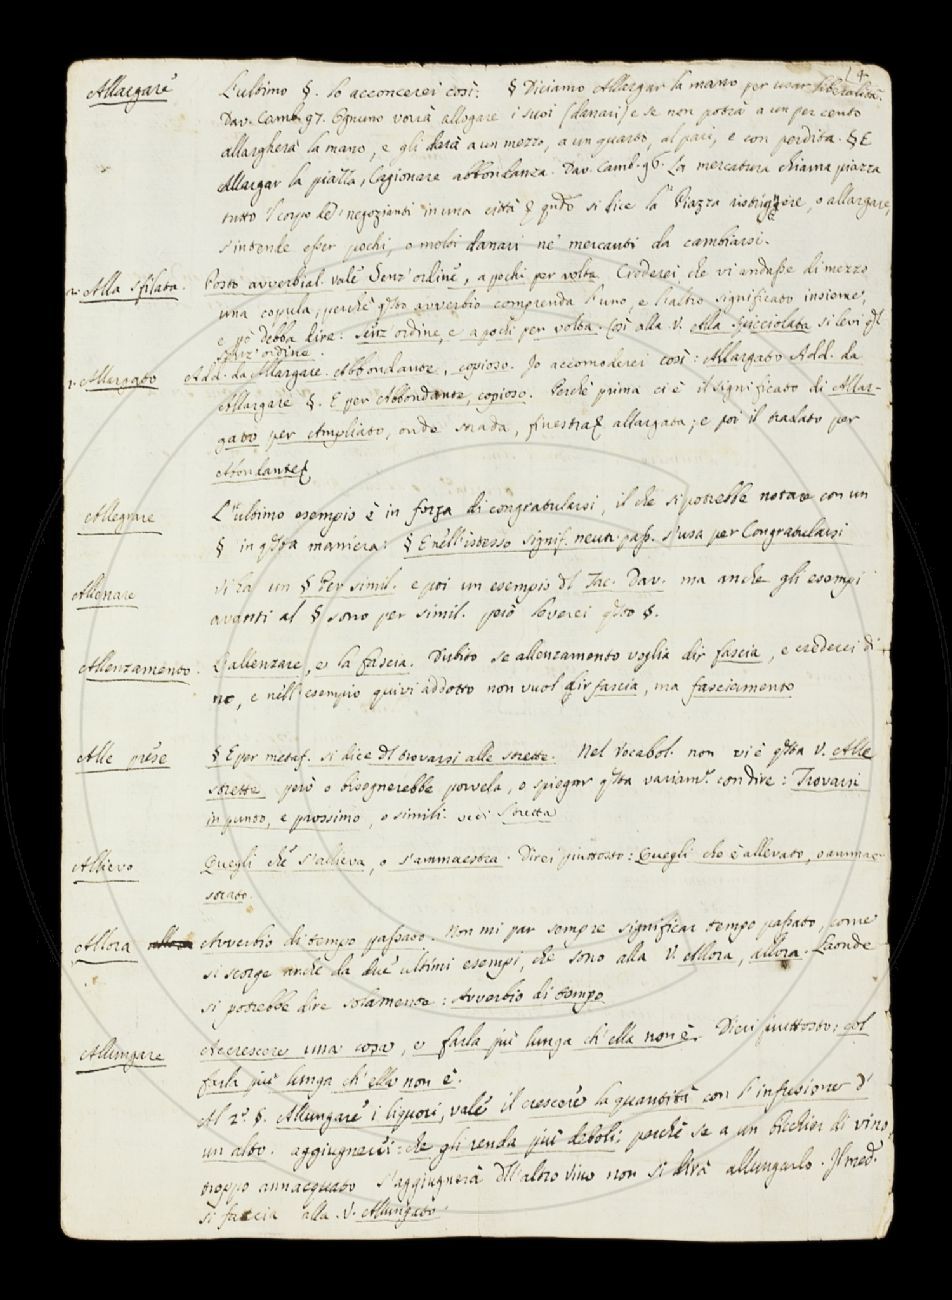 14
Allargare L'ultimo §. lo acconcerei così: § Diciamo Allargar la mano per usar liberalità.
Dav. Camb. 97. Ognuno vorrà allogare i suoi (danari) e se non potrà a un per cento
allargherà la mano, e gli darà a un mezzo, a un quarto, al pari, e con perdita. § E
Allargar la piazza, Cagionare abbondanza. Dav. Camb. 96. La mercatura chiama piazza
tutto 'l corpo de' negozianti in una città e qndo si dice la Piazza ristrignere, o allargare,
s'intende esser pochi, o molti danari ne' mercanti da cambiarsi.
Alla sfilata. Posto avverbial. vale Senz'ordine, a pochi per volta. Crederei che vi andasse di mezzo
una copula; perchè qsto avverbio comprenda l'uno, e l'altro significato insieme,
e pò debba dire: senz'ordine, e a pochi per volta. Così alla V. Alla spicciolata si levi ql
senz'ordine.
Allargato Add. da Allargare. Abbondante, copioso. Io accomoderei così: Allargato Add. da
Allargare §. E per Abbondante, copioso. Perchè prima ci è il significato di Allar-
gato per Ampliato, onde strada, finestra allargata; e poi il traslato per
Abondante
Allegrare L'ultimo esempio è in forza di congratularsi, il che si potrebbe notare con un
§ in qsta maniera: § E nell'istesso signif. neutr. pass. s'usa per Congratularsi
Allenare si fa un § Per simil. e poi un esempio di Tac. Dav. ma anche gli esempi
avanti al § sono per simil. però leverei qsto §.
Allenzamento. L'allenzare, e la fascia. Dubito se allenzamento voglia dir fascia, e crederei di
no, e nell'esempio quivi addotto non vuol dir fascia, ma fasciamento
Alle prese § E per metaf. si dice dl trovarsi alle strette. Nel Vocabol. non vi è qsta V. Alle
strette però o bisognerebbe porvela, o spiegar qsta variam.e con dire: Trovarsi
in punto, e prossimo, o simili. vedi Stretta
Allievo Quegli che s'allieva, o s'ammaestra. Direi piuttosto: Quegli che è allevato, o ammae-
strato.
Allora Avverbio di tempo passato. Non mi par sempre significar tempo passato, come
si scorge anche da due ultimi esempi, che sono alla V. Allora, allora. Laonde
si potrebbe dire solamente: Avverbio di tempo
Allungare Accrescere una cosa, e farla più lunga ch'ella non è. Direi piuttosto: col
farla più lunga ch'ella non è.
Al 2.° §. Allungare i liquori, vale il crescere la quantità con l'infusione d'
un altro. aggiugnerei: che gli renda più deboli: perchè se a un bicchier di vino,
troppo annacquato s'aggiugnerà dell'altro vino non si dirà allungarlo. Il med.°
si faccia alla V. Allungato.